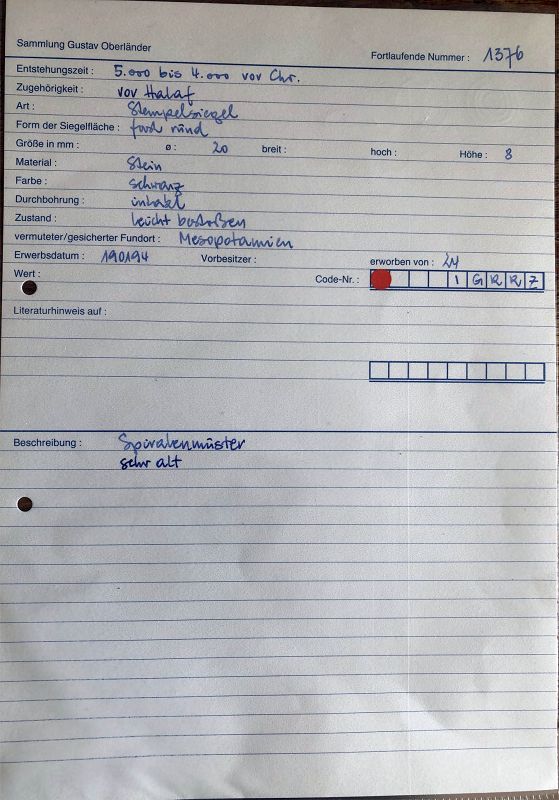 Sammlung Gustav Oberländer
Fortlaufende Nummer : 1376
Entstehungszeit : 5.000 bis 4.000 vor Chr.
Zugehörigkeit : vor Halaf
Art : Stempelsiegel
Form der Siegelfläche : fast rund
Größe in mm : ø : 20 breit : hoch : Höhe : 8
Material : Stein
Farbe : schwarz
Durchbohrung : intakt
Zustand : leicht bestoßen
vermuteter/gesicherter Fundort : Mesopotamien
Erwerbsdatum : 190194 Vorbesitzer : erworben von :
Wert : Code-Nr. : I G R R Z
Literaturhinweis auf :
Beschreibung : Spiralenmuster
sehr alt